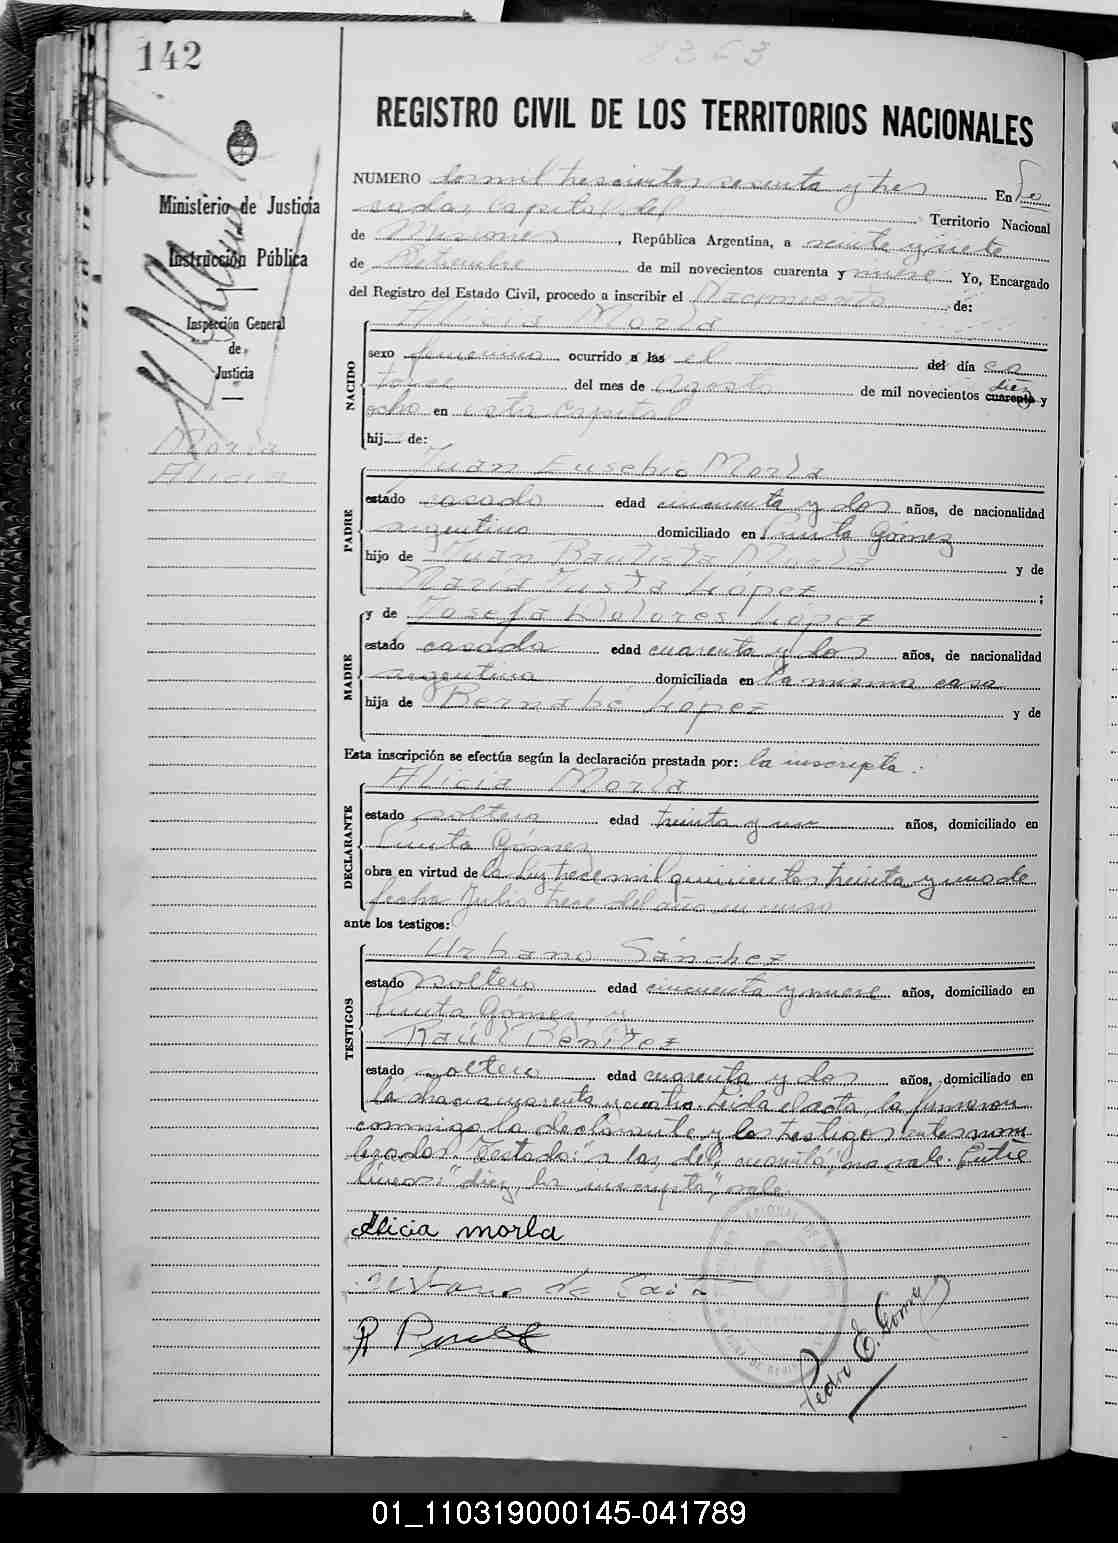 142
2363
REGISTRO CIVIL DE LOS TERRITORIOS NACIONALES
Ministerio de Justicia
Instrucción Pública
Inspección General
de
Justicia
Morla
Alicia
NUMERO dos mil trescientos sesenta y tres En Po
sadas, capital del Territorio Nacional
de Misiones, República Argentina, a veinte y siete
de Setiembre de mil novecientos cuarenta y nueve Yo, Encargado
del Registro del Estado Civil, procedo a inscribir el Nacimiento de:
NACIDO
Alicia Morla
sexo femenino ocurrido a las el del día ca
torce del mes de Agosto de mil novecientos cuarenta y
diez
ocho en esta capital
hij de:
PADRE
Juan Eusebio Morla
estado casado edad cincuenta y dos años, de nacionalidad
argentino domiciliado en Punta Gómez
hijo de Juan Bautista Morla y de
María Justa López ;
MADRE
y de Josefa Dolores López
estado casada edad cuarenta y dos años, de nacionalidad
argentina domiciliada en la misma casa
hija de Bernabé López y de
Esta inscripción se efectúa según la declaración prestada por: la inscripta:
DECLARANTE
Alicia Morla
estado soltera edad treinta y uno años, domiciliado en
Punta Gómez
obra en virtud de la Ley trece mil quinientos treinta y uno de
fecha Julio trece del año en curso
ante los testigos:
TESTIGOS
Urbano Sánchez
estado soltero edad cincuenta y nueve años, domiciliado en
Punta Gómez, y
Raúl Benítez
estado soltero edad cuarenta y dos años, domiciliado en
la chacra cuarenta y cuatro. Leida el acta, la firmaron
conmigo la declarante y los testigos antes nom
brados. Testado: "a las, del, cuarenta", no vale. Entre
líneas: "diez, la inscripta", vale
Alicia morla
Pedro E. Gomez
01_110319000145-041789